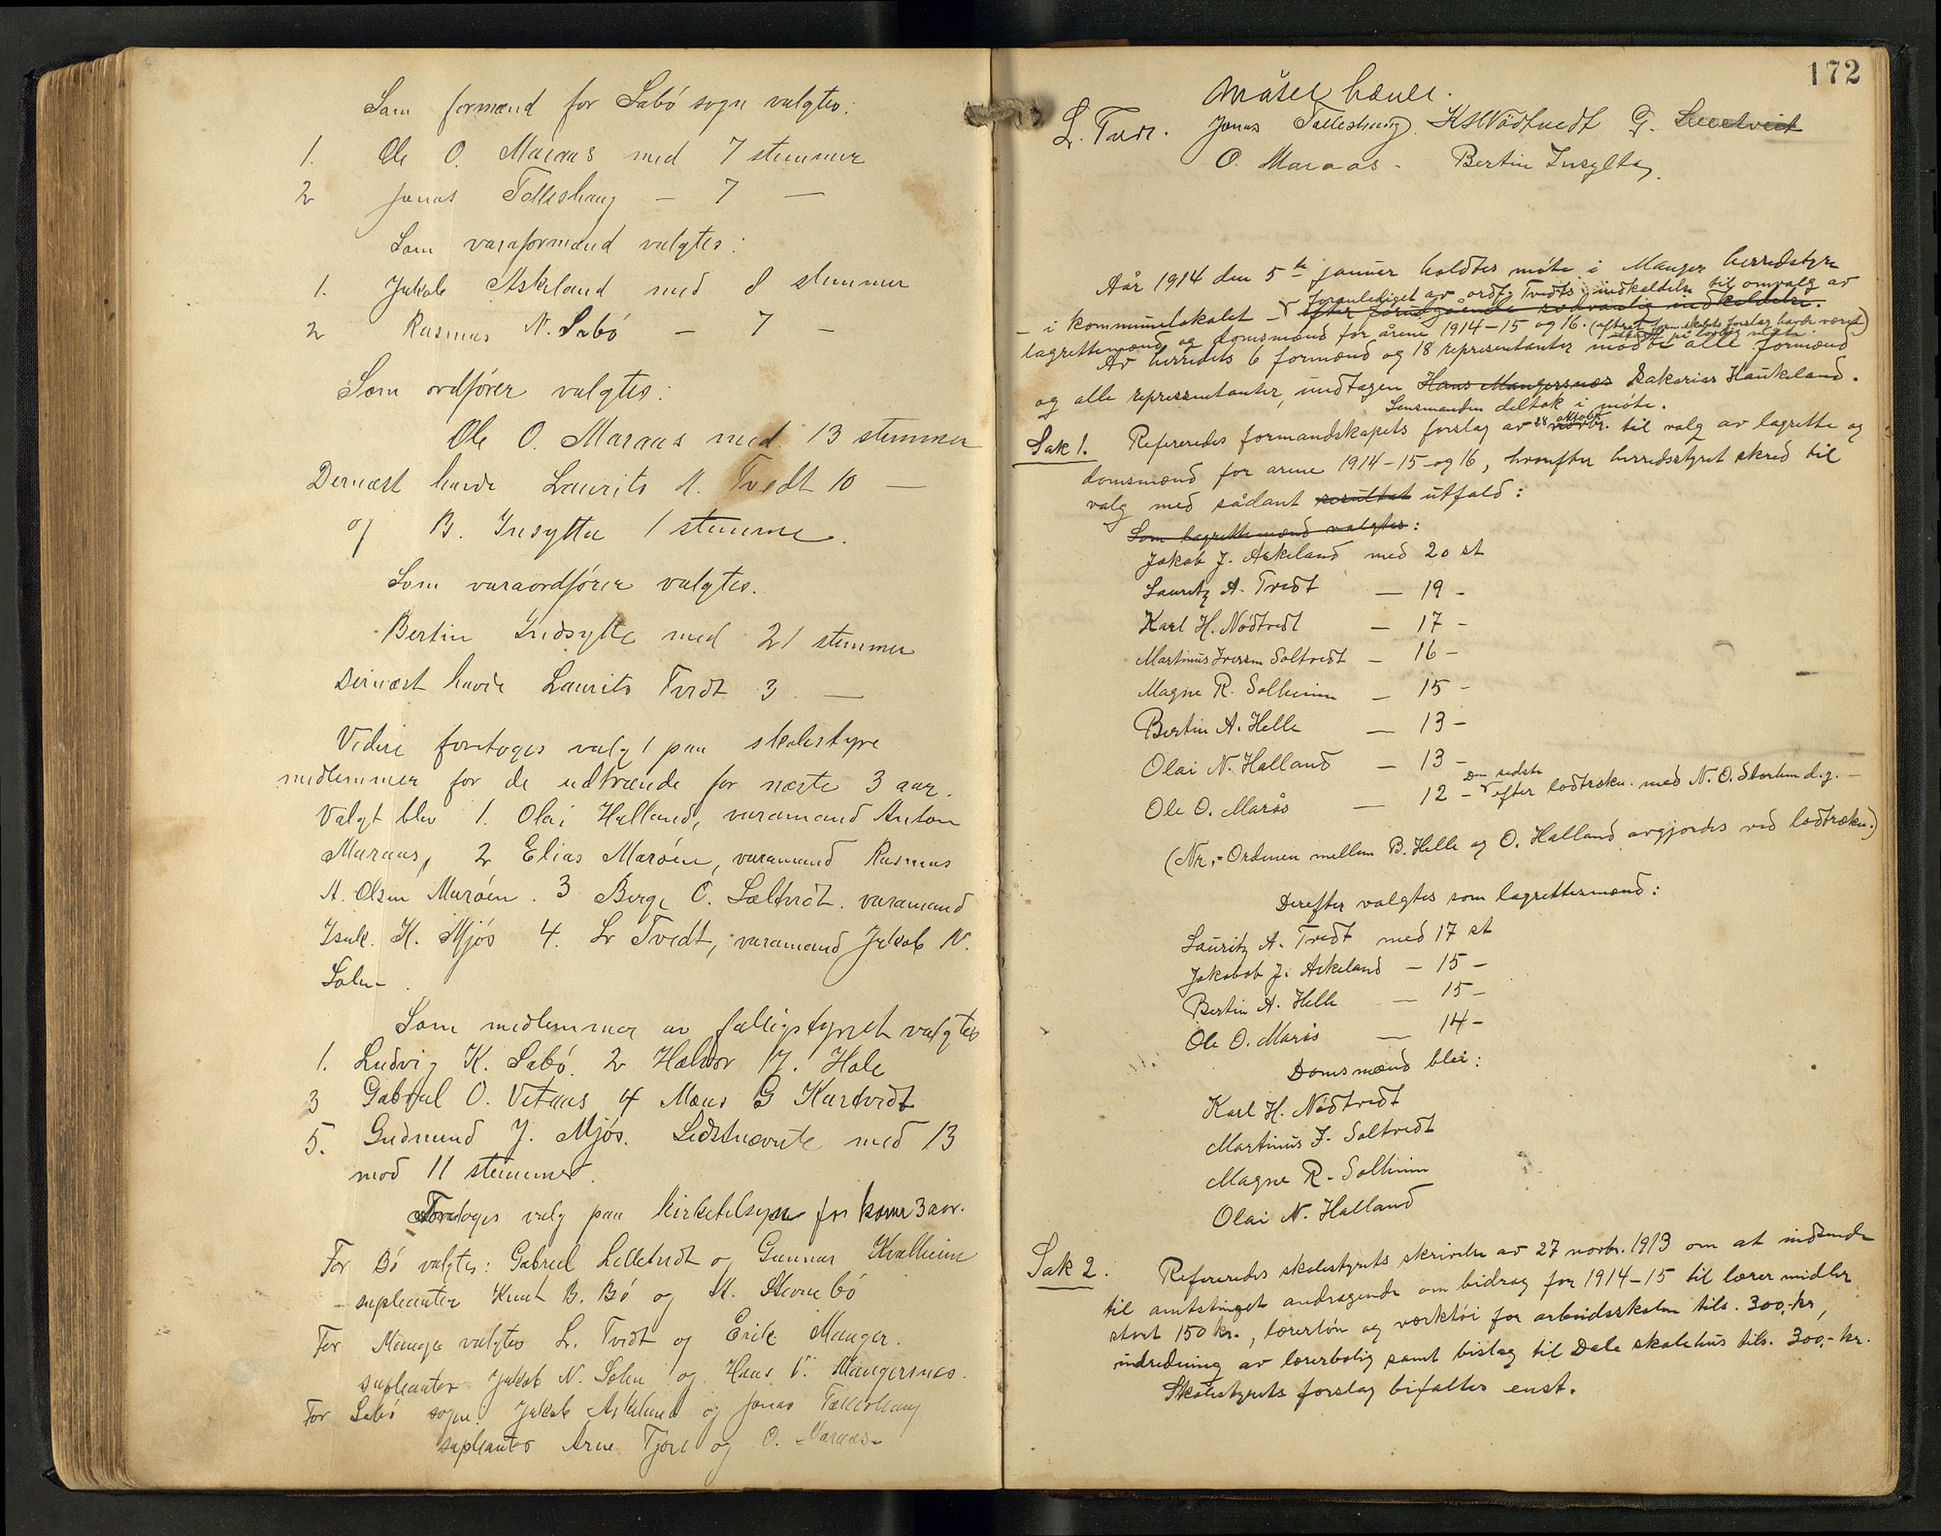 Som formænd for Sabö sogn valgtes:
1. Ole O. Maraas med 7 stemmer
2 Jonas Tolleshaug — 7 —
Som varaformænd valgtes:
1. Jakob Askeland med 8 stemmer
2 Rasmus N. Sabö — 7 —
Som ordfører valgtes:
Ole O. Maraas med 13 stemmer
Dernæst havde Laurits A. Tvedt 10 —
og B. Insytte 1 stemme.
Som varaordfører valgtes.
Bertin Indsytte med 21 stemmer
Dernæst havde Laurits Tvedt 3. —
Videre foretoges valg paa skolestyre
medlemmer for de udtrædende for næste 3 aar.
Valgt blev 1. Olai Halland, varamand Anton
Maraas, 2 Elias Maröen, varamand Rasmus
A. Olsen Maröen. 3 Berge O. Sæltvedt. varamand
Isak. K. Mjös 4. L. Tvedt, varamand Jakob N.
Solem.
Som medlemmer av fattigstyret valgtes
1. Ludvig K. Sabö. 2 Halvor M. Hole
3 Gabriel O. Vetaas 4 Mons G Kartvedt
5. Gudmund J. Mjös. Sidstnævnte med 13
mod 11 stemmer.
Foretoges valg paa kirketilsyn for kome 3 aar.
For Bö valgtes: Gabriel Lilletvedt og Gunnar Kvalheim
supleanter Knut B. Bö og K. Storebö
For Manger valgtes L. Tvedt og Erik Manger.
supleanter Jakob N. Solem og Hans V. Mangersnes.
For Sabö sogn. Jakob Askeland og Jonas Tolleshaug
supleanter Arne Fjore og O. Maraas.
172
Mötet hævet.
L. Tvedt. Jonas Tolleshaug. K H Nödtvedt G.
O. Maraas - Bertin Insytte.
Aar 1914 den 5te januar holdtes möte i Manger herredstyre
foranlediget av ordf. Tvedts indkaldelse til omvalg av
- i kommunelokalet - efter forutgaaende lovvanlig indkaldelse.
lagrettemænd og domsmænd for årene 1914-15 og 16. (efterat form.skabets forslag havde været på lovlig måte.)
Av herredets 6 formænd og 18 representanter mödte alle formænd
og alle representanter, undtagen Hans Mangersnes Sakarias Haukeland.
Lensmanden deltok i möte.
Sak 1. Refereredes formandskapets forslag av 28 oktobr. novbr. til valg av lagrette og
domsmænd for arene 1914-15-og 16, hvorefter herredsstyret skred til
valg med sådant resultat utfald:
Som lagrettemænd valgtes:
Jakob J. Askeland med 20 st
Lauritz A. Tvedt — 19 -
Karl H. Nödtvedt — 17 -
Martinus Iversen Soltvedt — 16 -
Magne R. Solheim — 15 -
Bertin A. Helle — 13 -
Olai N. Halland — 13 -
Den sidste
Ole O. Marås — 12 - efter lodtrækn. med N. O. Storheim d.y. -
(Nr.-Ordenen mellem B. Helle og O. Halland avgjordes ved lodtrækn.)
Derefter valgtes som lagrettemænd:
Lauritz A. Tvedt med 17 st
Jakobob J. Askeland — 15 -
Bertin A. Helle — 15 -
Ole O. Marås — 14 -
Domsmænd blev:
Karl H. Nödtvedt
Martinus J. Soltvedt
Magne R. Solheim
Olai N. Halland
Sak 2. Refereredes skolestyrets skrivelse av 27 novbr. 1913 om at indsende
til amtstinget andragende om bidrag for 1914-15 til læremidler
stort 150 kr., lærerlön og værktöi for arbeidsskolen tils. 300,- kr,
indredning av lærerbolig samt bislag til Dale skolehus tils. 300,- kr.
Skolestyrets forslag bifaltes enst.